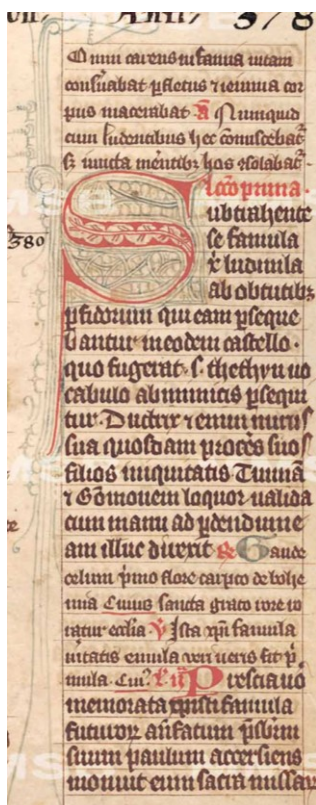 Omni carens infamia vitam
consuabat ꝑfletus ⁊ ieiunia cor
pus macerabat a Numquid
cum ludentibus hec comiscebat
sꝫ iuncta merentibꝫ hos ꝯsolabat
Lcõ prima
Subtrahente
se famula
xp̄i ludmila
ab obtutibꝫ
380
ꝑfidorum qui eam ꝑseque
bantur in eodem castello
quo fugerat s. thethyn uo
cabulo ab inimicis ꝑsequi
tur. Ductrix ⁊ enim nurus
sua quosdam proceres suos
filios iniquitatis Tunnã
⁊ Gõmonem loquor ualida
cum manu ad ꝑdendum e
am illuc direxit R Gaude
celum pͥmo flore carpto de bohe
mia Cuius sancta grato uore io
catur ecclia V Ista xp̄i famula
uitatis emula ueri ueris fit pͥ
mula Cuiꝰ. Prescia uõ
memorata xpisti famula
futurorꝫ anfatum pͥsbim
suum paulum accersiens
monuit eum sacra missar